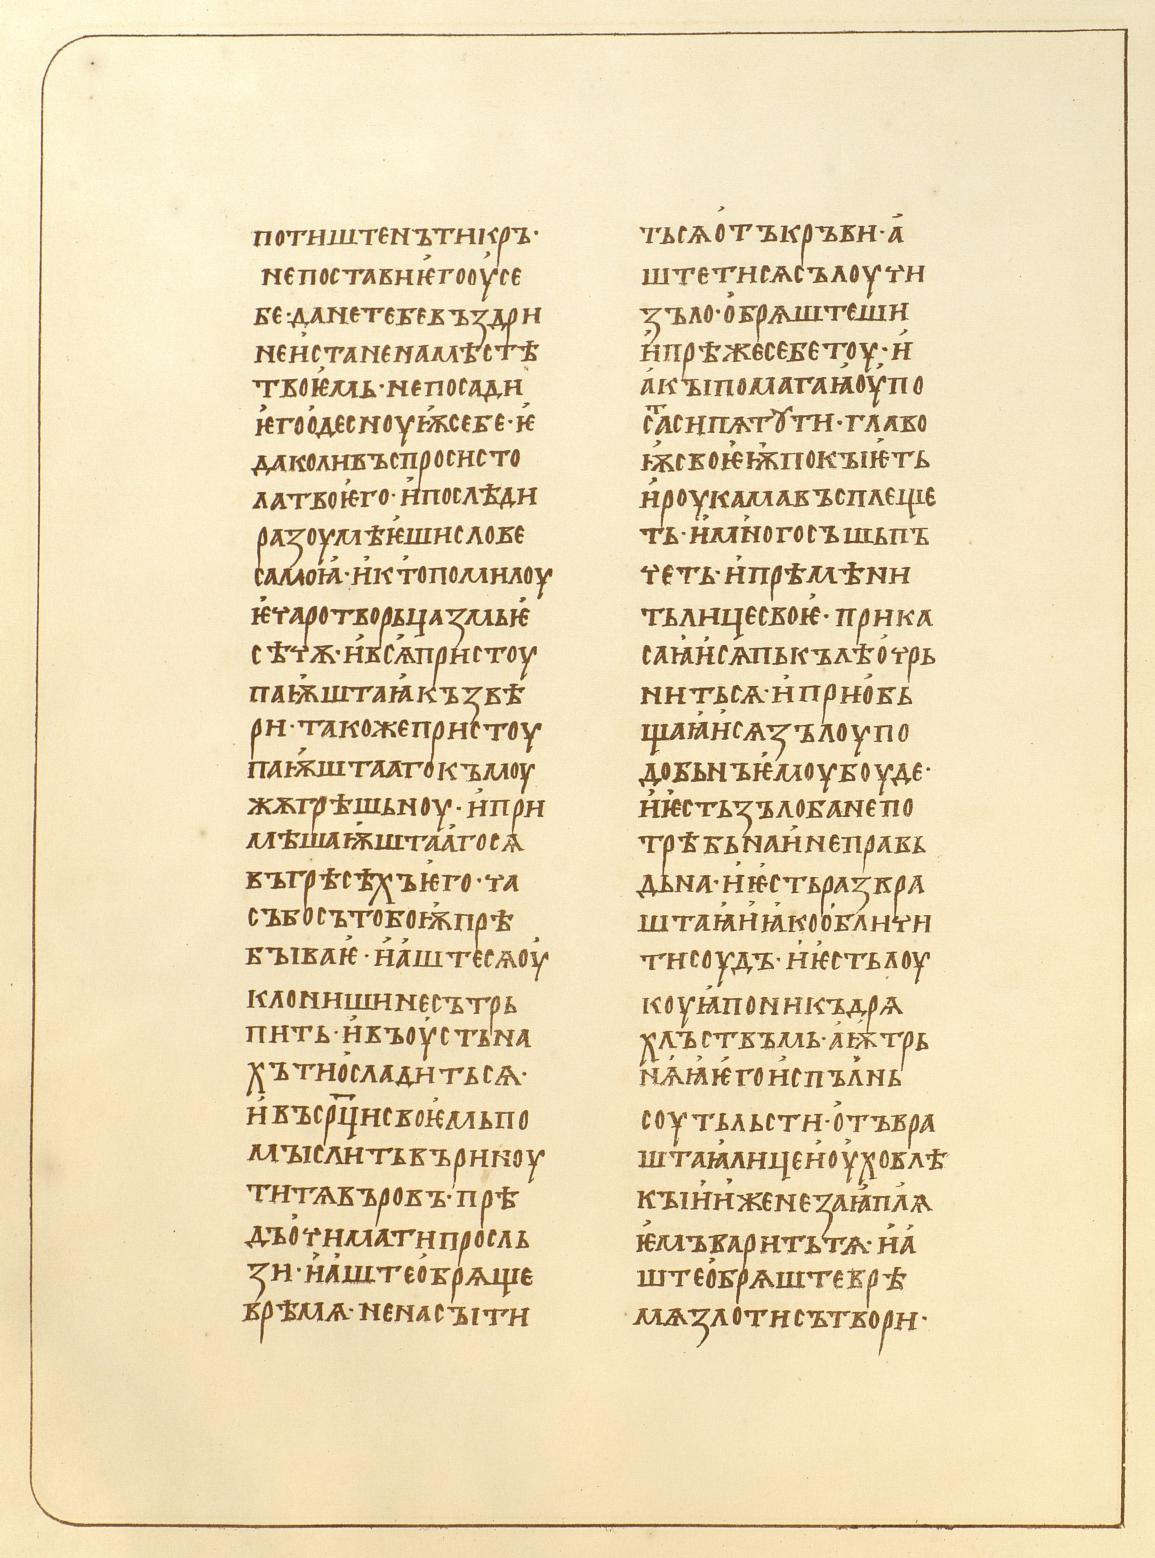 потиштенътикръ·
непоставиѥгооусе
бе·данетебевъздри
неистаненамѣстѣ
твоѥмь·непосади
ѥгоодесноуѭсебе·ѥ
даколивъспросисто
латвоѥго·ипослѣди
разоумѣѥшислове
самоꙗ·иктопомилоу
ѥтаротворьцазмьѥ
сѣчѫ·ивсѧпристоу
паѭштаꙗкъзвѣ
ри·такожепристоу
паѭштаагокъмоу
жѫгрѣшьноу·ипри
мѣшаѭштаагосѧ
въгрѣсѣхъѥго·ча
събосътобоѭпрѣ
бываѥ·иаштесѧоу
клонишинесътрь
пить·ивъоустьна
хътиосладитьсѧ·
ивъср҃цисвоѥмьпо
мыслитьвъриноу
титѧвъровъ·прѣ
дъочиматипросль
зи·иаштеобрѧще
врѣмѧ·ненасыти
тьсѧотъкръви·а
штетисѧсълоучи
зъло·обрѧштеши
ипрѣжесебетоу·и
акыпомагаꙗоупо
сасипѧтꙋти·главо
ѭсвоѥѭпокыѥть
ироукамавъсплеще
ть·имногосъшьпъ
четь·ипрѣмѣни
тьлицесвоѥ·прика
саꙗисѧпькълѣочрь
нитьсѧ·иприобь
щаꙗисѧзълоупо
добьнъѥмоубоуде·
иѥстьзълобанепо
трѣбьнаинеправь
дьна·иѥстьразвра
штаꙗиꙗкообличи
тисоудъ·иѥстьлоу
коуꙗпоникъдрѧ
хлъствъмь·аѭтрь
нѧꙗѥгоиспълнь
соутьльсти·отъвра
штаꙗлицеиоуховлѣ
кыииженезаꙗплѧ
ѥмъваритьтѧ·иа
штеобрѧштеврѣ
мѧзлотисътвори·